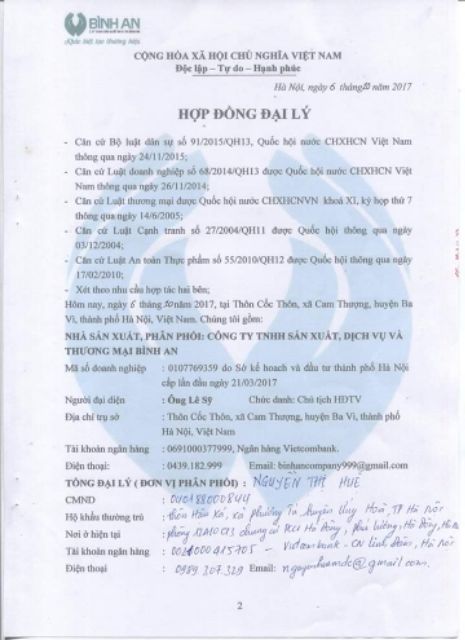 BÌNH AN
Khác biệt tạo thương hiệu
CỘNG HÒA XÃ HỘI CHỦ NGHĨA VIỆT NAM
Độc lập – Tự do – Hạnh phúc
Hà Nội, ngày 6 tháng 10 năm 2017
HỢP ĐỒNG ĐẠI LÝ
- Căn cứ Bộ luật dân sự số 91/2015/QH13, Quốc hội nước CHXHCN Việt Nam
thông qua ngày 24/11/2015;
- Căn cứ Luật doanh nghiệp số 68/2014/QH13 được Quốc hội nước CHXHCN Việt
Nam thông qua ngày 26/11/2014;
- Căn cứ Luật thương mại được Quốc hội nước CHXHCNVN khoá XI, kỳ họp thứ 7
thông qua ngày 14/6/2005;
- Căn cứ Luật Cạnh tranh số 27/2004/QH11 được Quốc hội thông qua ngày
03/12/2004;
- Căn cứ Luật An toàn Thực phẩm số 55/2010/QH12 được Quốc hội thông qua ngày
17/02/2010;
- Xét theo nhu cầu hợp tác hai bên;
Hôm nay, ngày 6 tháng 10 năm 2017, tại Thôn Cốc Thôn, xã Cam Thượng, huyện Ba
Vì, thành phố Hà Nội, Việt Nam. Chúng tôi gồm:
NHÀ SẢN XUẤT, PHÂN PHỐI: CÔNG TY TNHH SẢN XUẤT, DỊCH VỤ VÀ
THƯƠNG MẠI BÌNH AN
Mã số doanh nghiệp : 0107769359 do Sở kế hoạch và đầu tư thành phố Hà Nội
cấp lần đầu ngày 21/03/2017
Người đại diện : Ông Lê Sỹ Chức danh: Chủ tịch HĐTV
Địa chỉ trụ sở : Thôn Cốc Thôn, xã Cam Thượng, huyện Ba Vì, thành phố
Hà Nội, Việt Nam
Tài khoản ngân hàng : 0691000377999, Ngân hàng Vietcombank.
Điện thoại: : 0439.182.999 Email: binhancompany999@gmail.com
TỔNG ĐẠI LÝ ( ĐƠN VỊ PHÂN PHỐI) : NGUYỄN THỊ HUE
CMND : 040188000844
Hộ khẩu thường trú : thôn Hòa Xá, xã phương Tú huyện Ứng Hoà, TP Hà Nội
Nơi ở hiện tại : phòng chung cư Hà Đông, phú lương, Hà Đông, Hà Nội
Tài khoản ngân hàng : 0021000415705 – Vietcombank – CN Hà Nội
Điện thoại : 0989.307.329 Email: @gmail.com.
2